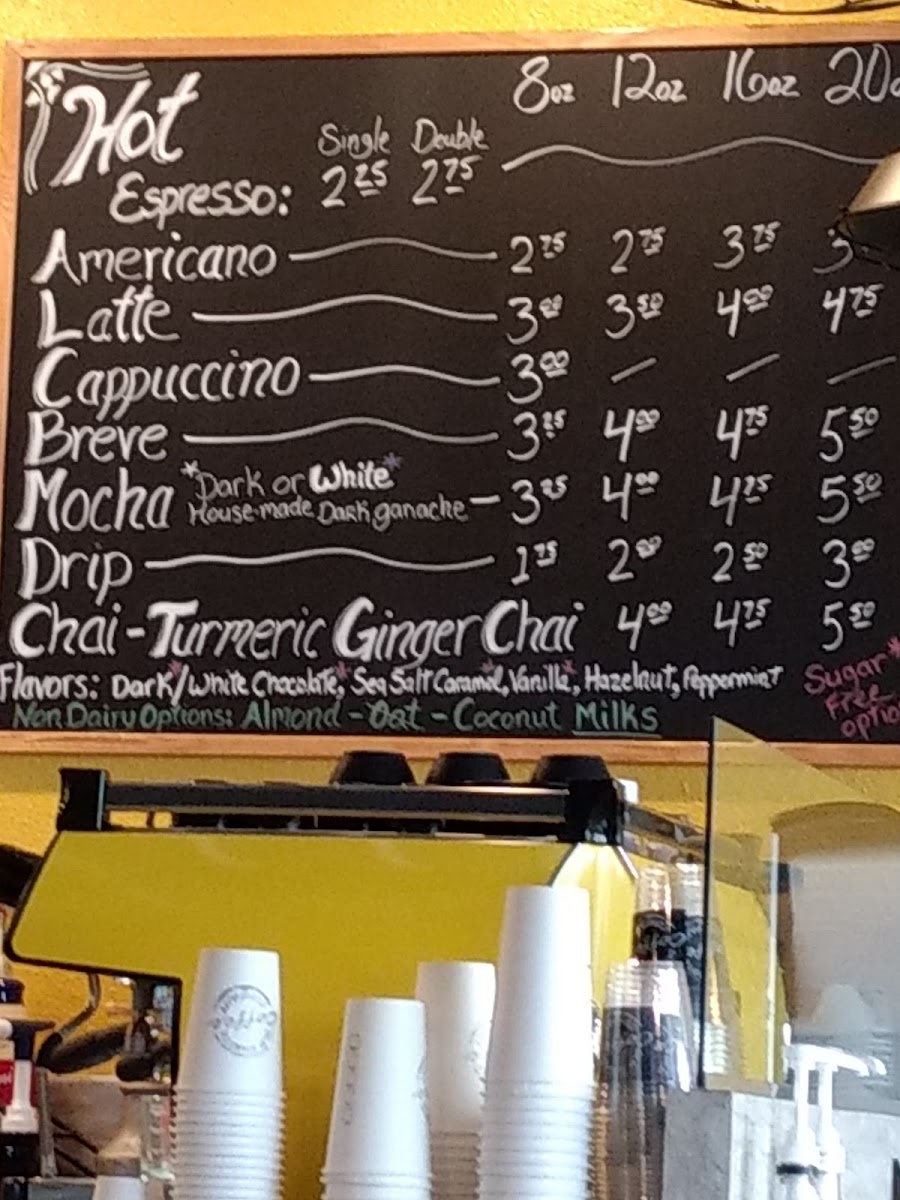 Hot 8oz 12oz 16oz 20
Single Double
Espresso: 2 25 2 75
Americano 2 75 2 75 3 75 3
Latte 3 00 3 50 4 00 4 75
Cappuccino 3 00
Breve 3 25 4 00 4 75 5 50
Mocha *Dark or White* 3 25 4 00 4 75 5 50
House-made Dark ganache
Drip 1 75 2 00 2 50 3 00
Chai - Turmeric Ginger Chai 4 00 4 75 5 50
Flavors: Dark*/White Chocolate*, Sea Salt Caramel*, Vanilla*, Hazelnut, Peppermint
Sugar*
Free
optio
Non Dairy Options: Almond - Oat - Coconut Milks
Coffee